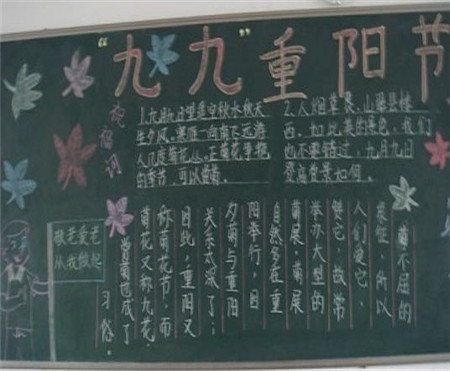 “九九”重阳节
祝福词
1.九月九日望遥空秋水秋天
生夕风。寒雁一向南飞远游
人几度菊花丛。正菊花争艳
的季节,可以
2.人烟
西。如此美的景色,我们
也不要错过,九月九日
登高赏景如何。
敬老爱老
从我做起
菊不屈的
象征,所以
人们爱它、
赞它,故常
举办大型的
菊展。菊展
自然多在重
阳举行,因
夕菊与重阳
关系太深了;
因此,重阳又
称菊花节,而
菊花又称九花。
赏菊也成了
习俗。